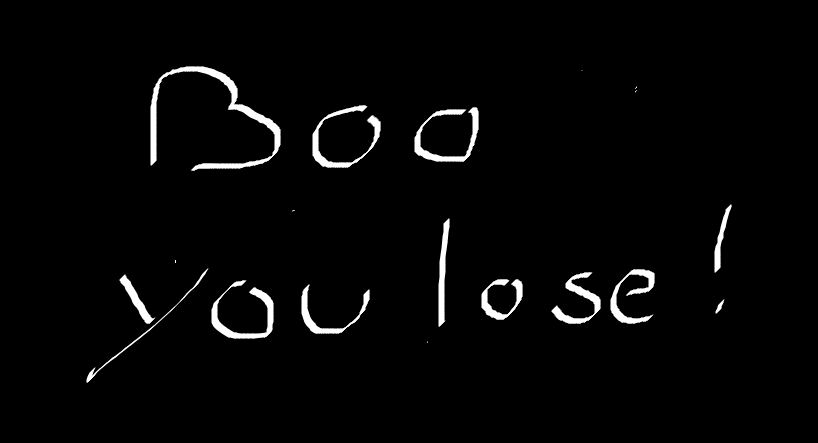 Boo
you lose!